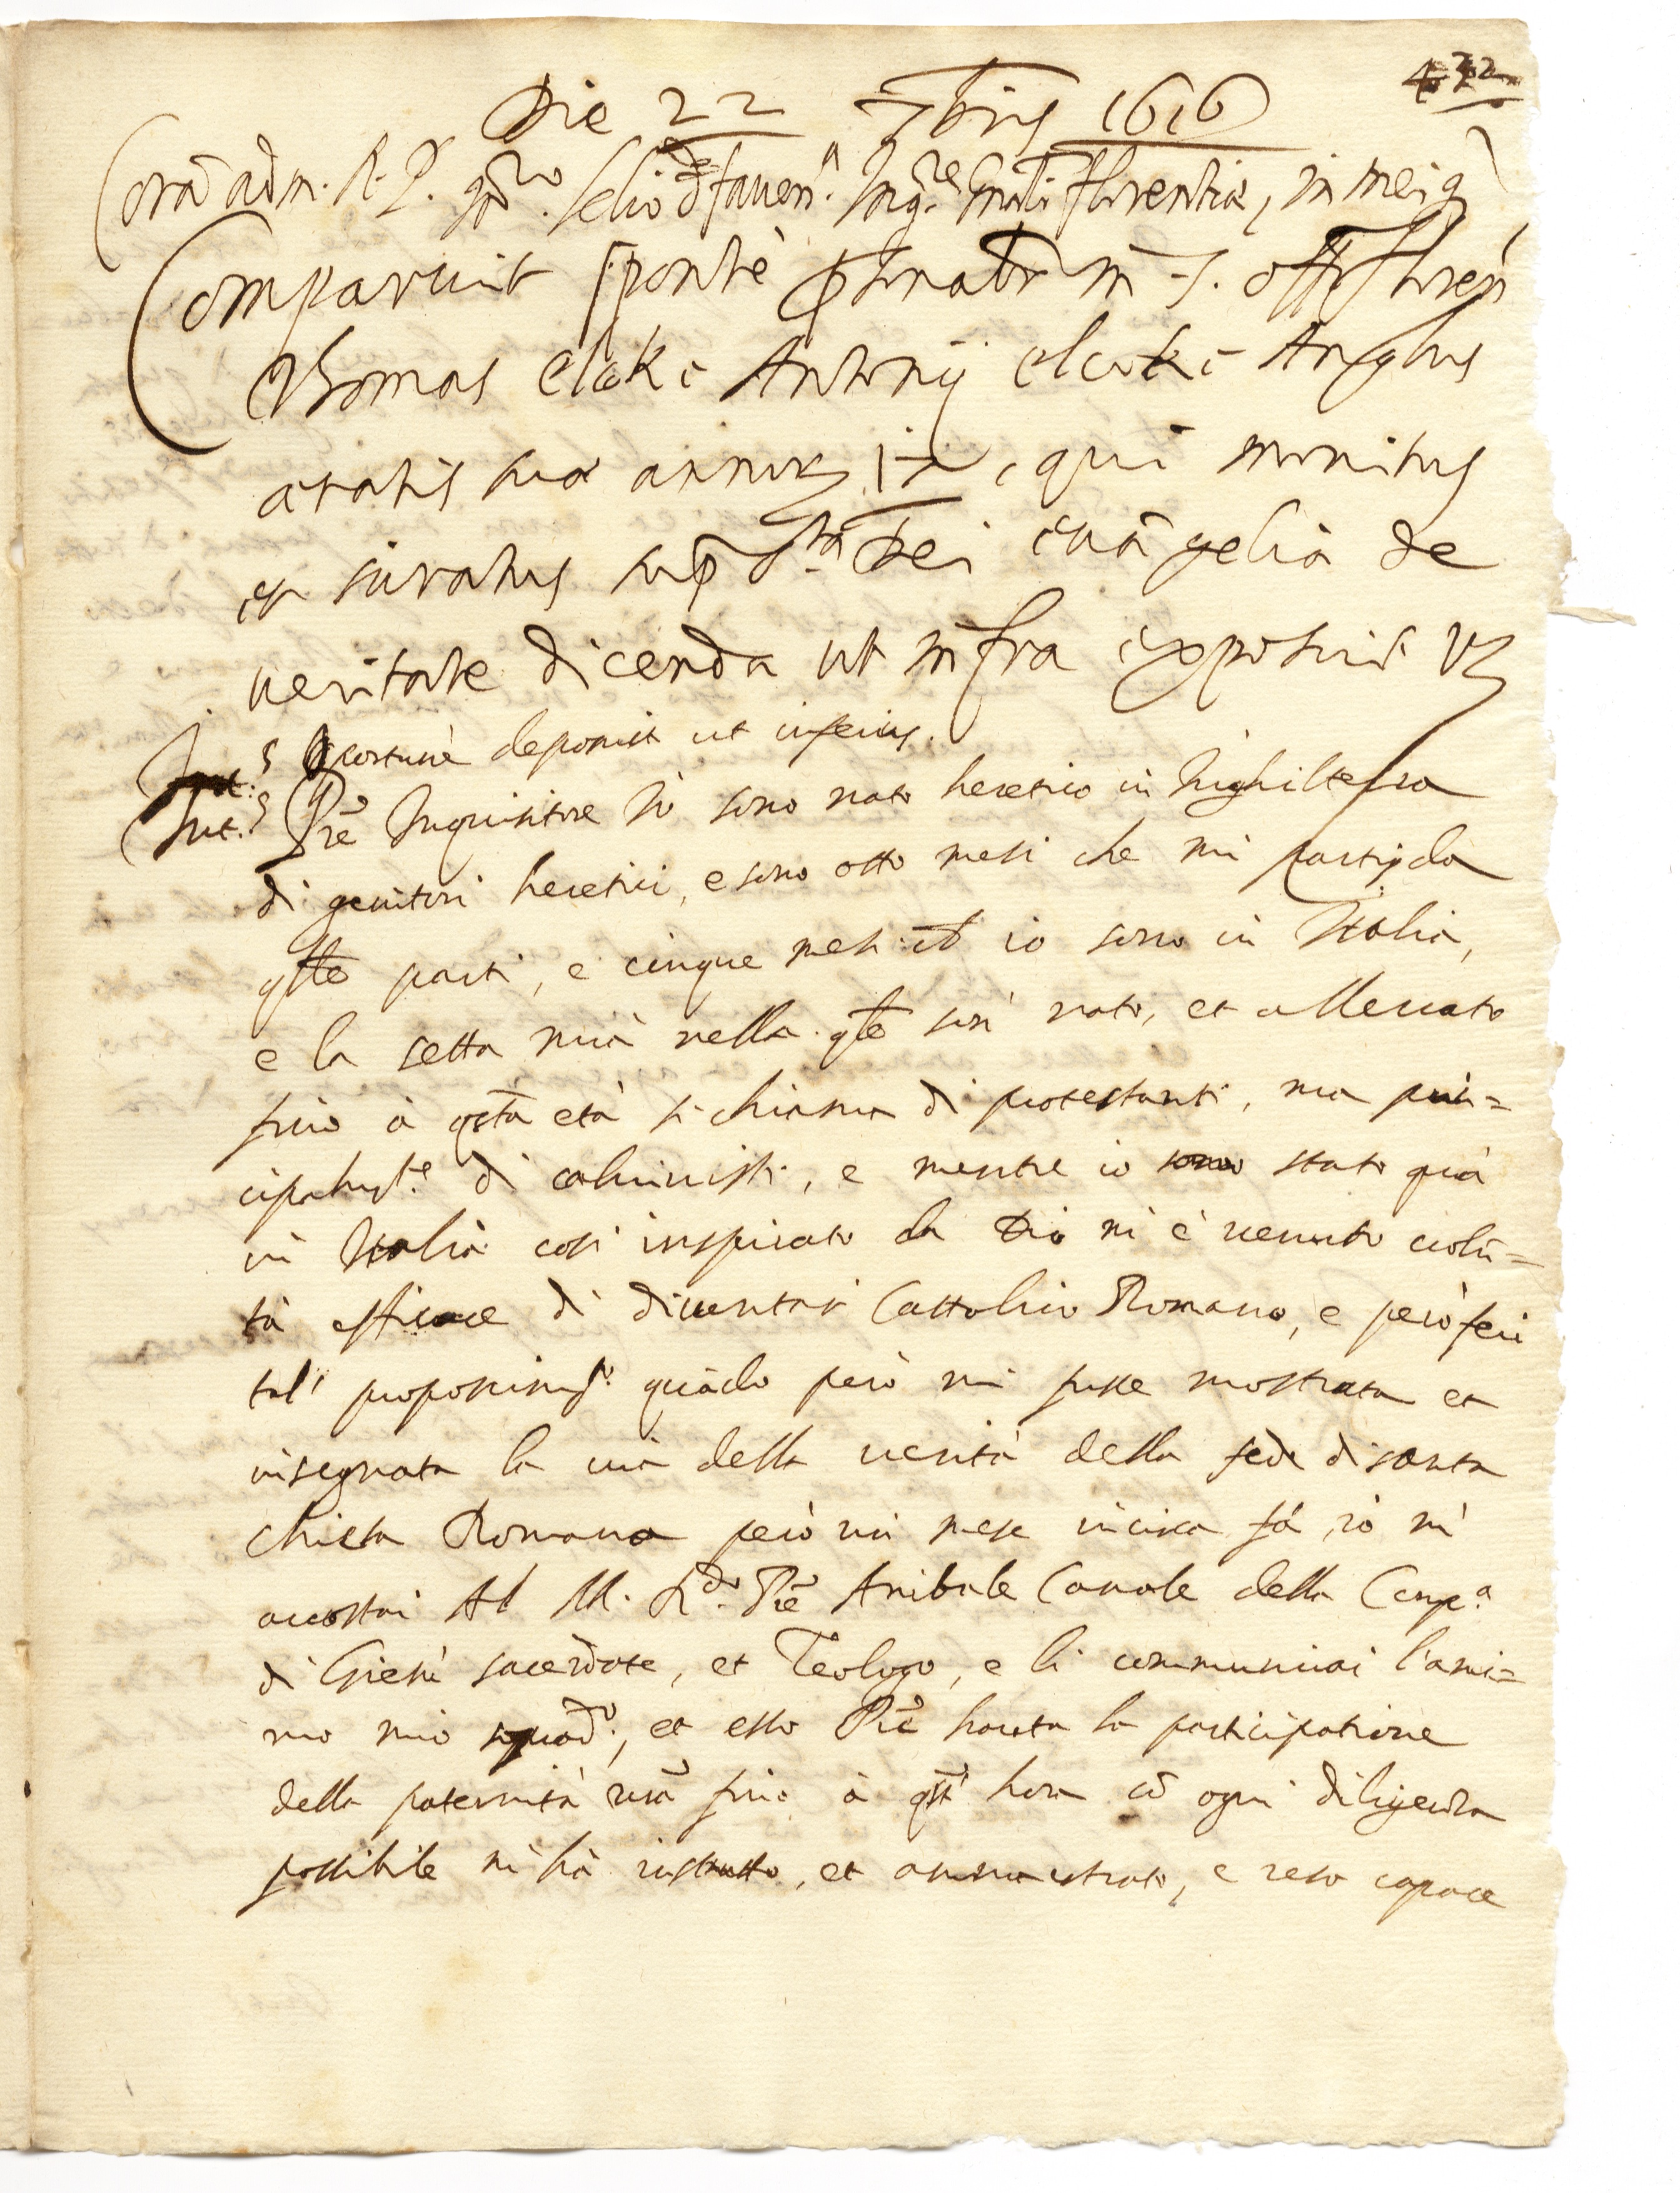 432
Die 22 7bris 1616
Corã adm. R. P. Lelio faven. Inq.re Gnãli Florentiæ, in meiq
Comparuit sponte psonalr in S. Offo Floren
Thomas clark Antonij Anglus
ætatis suæ annorz 17, qui monitus
et iuratus sup S.ta Dei evãgelia de
veritate dicenda ut infra exposuit vz
deponit ut inferius.
Int.s Prẽ Inquisitore Io sono nato heretico in Inghilterra
di genitori heretici, e sono otto mesi che mi partij da
q̃lle parti, e cinque mesi io sono in Italia,
e la setta mia nella q̃le son nato, et allevato
fino à q̃sta età si chiama di protestanti, ma prin=
cipalm.te di calvinisti, e mentre io sono stato quà
in Italia cosi inspirato da Dio mi è venuto volũ=
tà efficace di diventar Cattolico Romano, e però feci
tal proponim.to quãdo però mi fusse mostrata et
insegnata la via della verità della fede di santa
Chiesa Romana però un mese incirca fà, io mi
accostai Al M. R.do Prẽ Anibale Canale della Comp.a
di Giesù sacerdote, et Teologo, e li communicai l'ani=
mo mio soprad.o, et esso Prẽ havuta la participatione
della paternità vr̃a fino à q̃st' hora cõ ogni diligenza
possibile mi hà instrutto, et ammaestrato, e reso capace